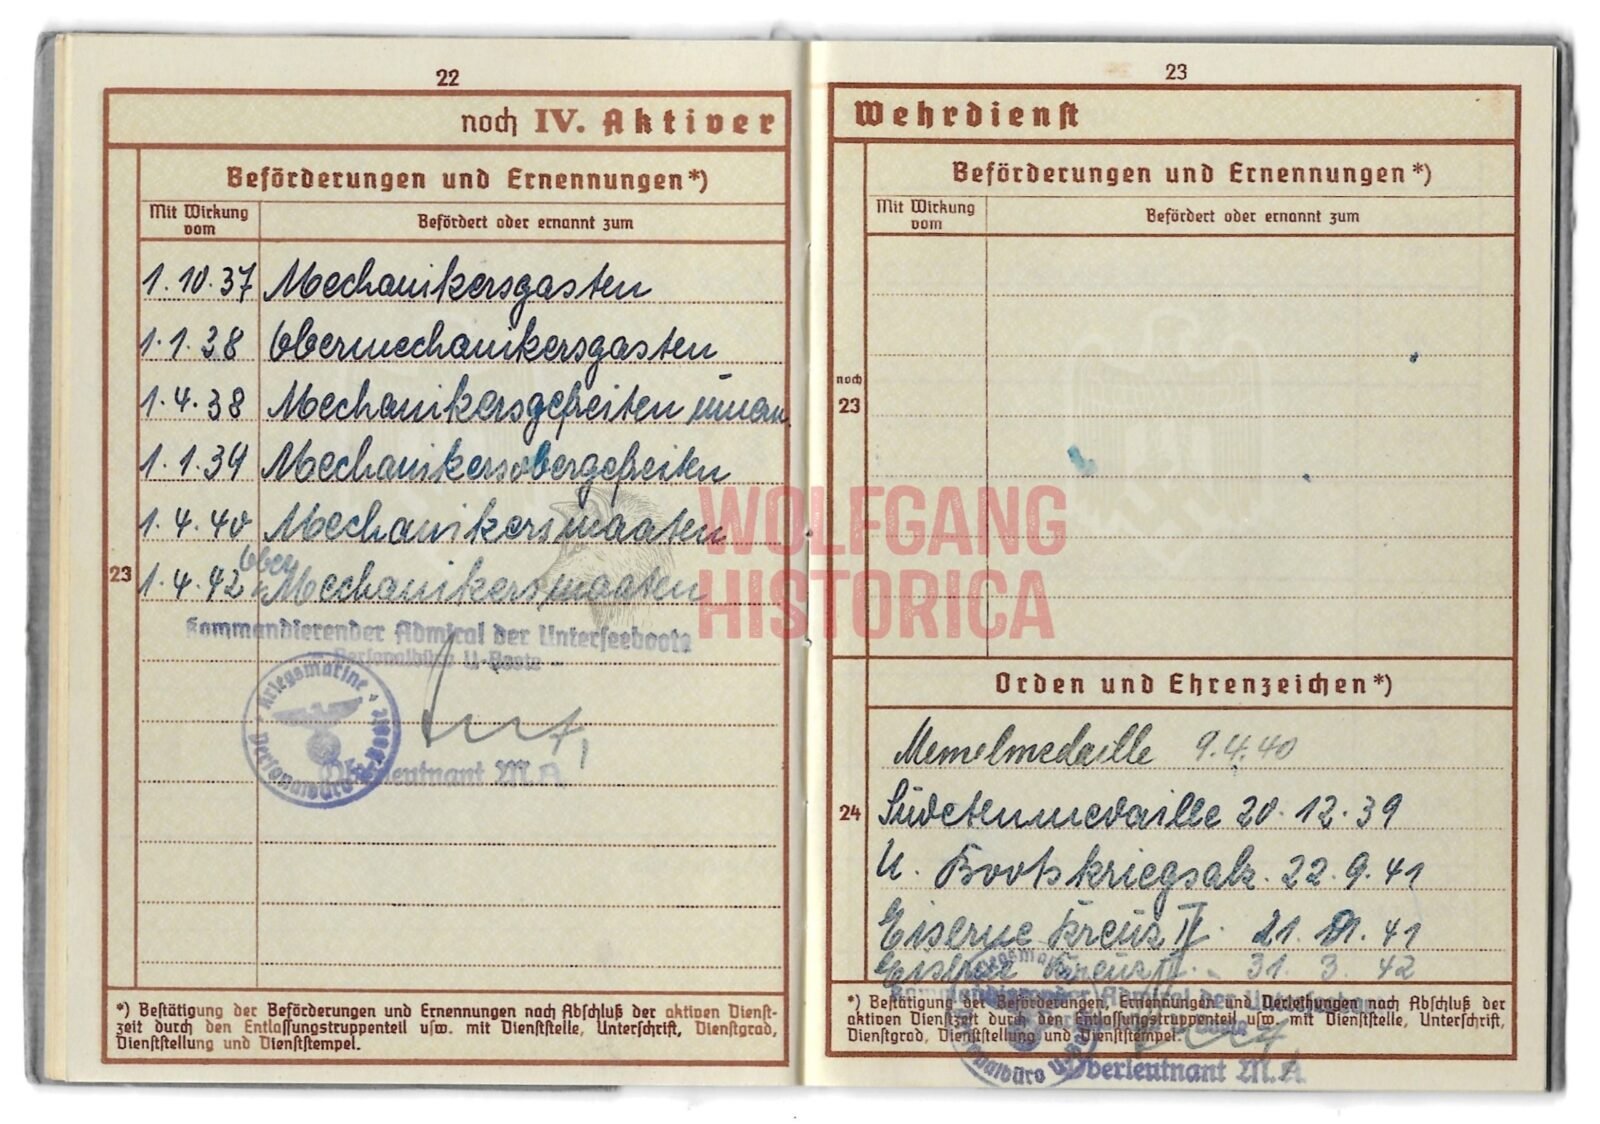 22
noch IV. Aktiver
Beförderungen und Ernennungen*)
Mit Wirkung vom
Befördert oder ernannt zum
1.10.37 Mechanikersgasten
1.1.38 Obermechanikersgasten
1.4.38 Mechanikersgefreiten
1.1.39 Mechanikersobergefreiten
1.4.40 Mechanikersmaaten
Ober
23 1.4.42 Mechanikersmaaten
Kommandierender Admiral der Unterseeboote
- Personalbüro U-Boote -
Kriegsmarine
Personalbüro U-Boote
Oberleutnant M.A.
*) Bestätigung der Beförderungen und Ernennungen nach Abschluß der aktiven Dienst-
zeit durch den Entlassungstruppenteil usw. mit Dienststelle, Unterschrift, Dienstgrad,
Dienststellung und Dienststempel.
23
Wehrdienst
Beförderungen und Ernennungen*)
Mit Wirkung vom
Befördert oder ernannt zum
noch
23
Orden und Ehrenzeichen*)
Memelmedaille 9.4.40
24 Sudetenmedaille 20.12.39
U. Bootskriegsabz. 22.9.41
Eiserne Kreuz II. 21. 41
Eiserne Kreuz 31.3.42
Kommandierender Admiral der Unterseeboote
*) Bestätigung der Beförderungen, Ernennungen und Verleihungen nach Abschluß der
aktiven Dienstzeit durch den Entlassungstruppenteil usw. mit Dienststelle, Unterschrift,
Dienstgrad, Dienststellung und Dienststempel.
Kriegsmarine
Personalbüro U-Boote
Oberleutnant M.A.
WOLFGANG
HISTORICA